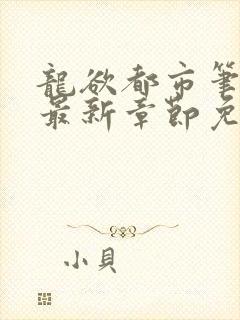 龍欲都市筆
最新章節免
小貝